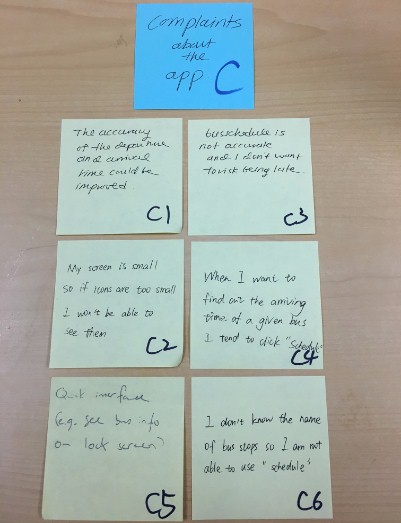 Complaints
about
the
app C
The accuracy
of the departure
and arrival
time could be
improved
C1
bus schedule is
not accurate
and I don't want
to risk being late.
C3
My screen is small
so if icons are too small
I won't be able to
see them
C2
When I want to
find out the arriving
time of a given bus
I tend to click "schedule"
C4
Quick interface
(e.g. see bus info
on lock screen)
C5
I don't know the name
of bus stops so I am not
able to use "schedule"
C6